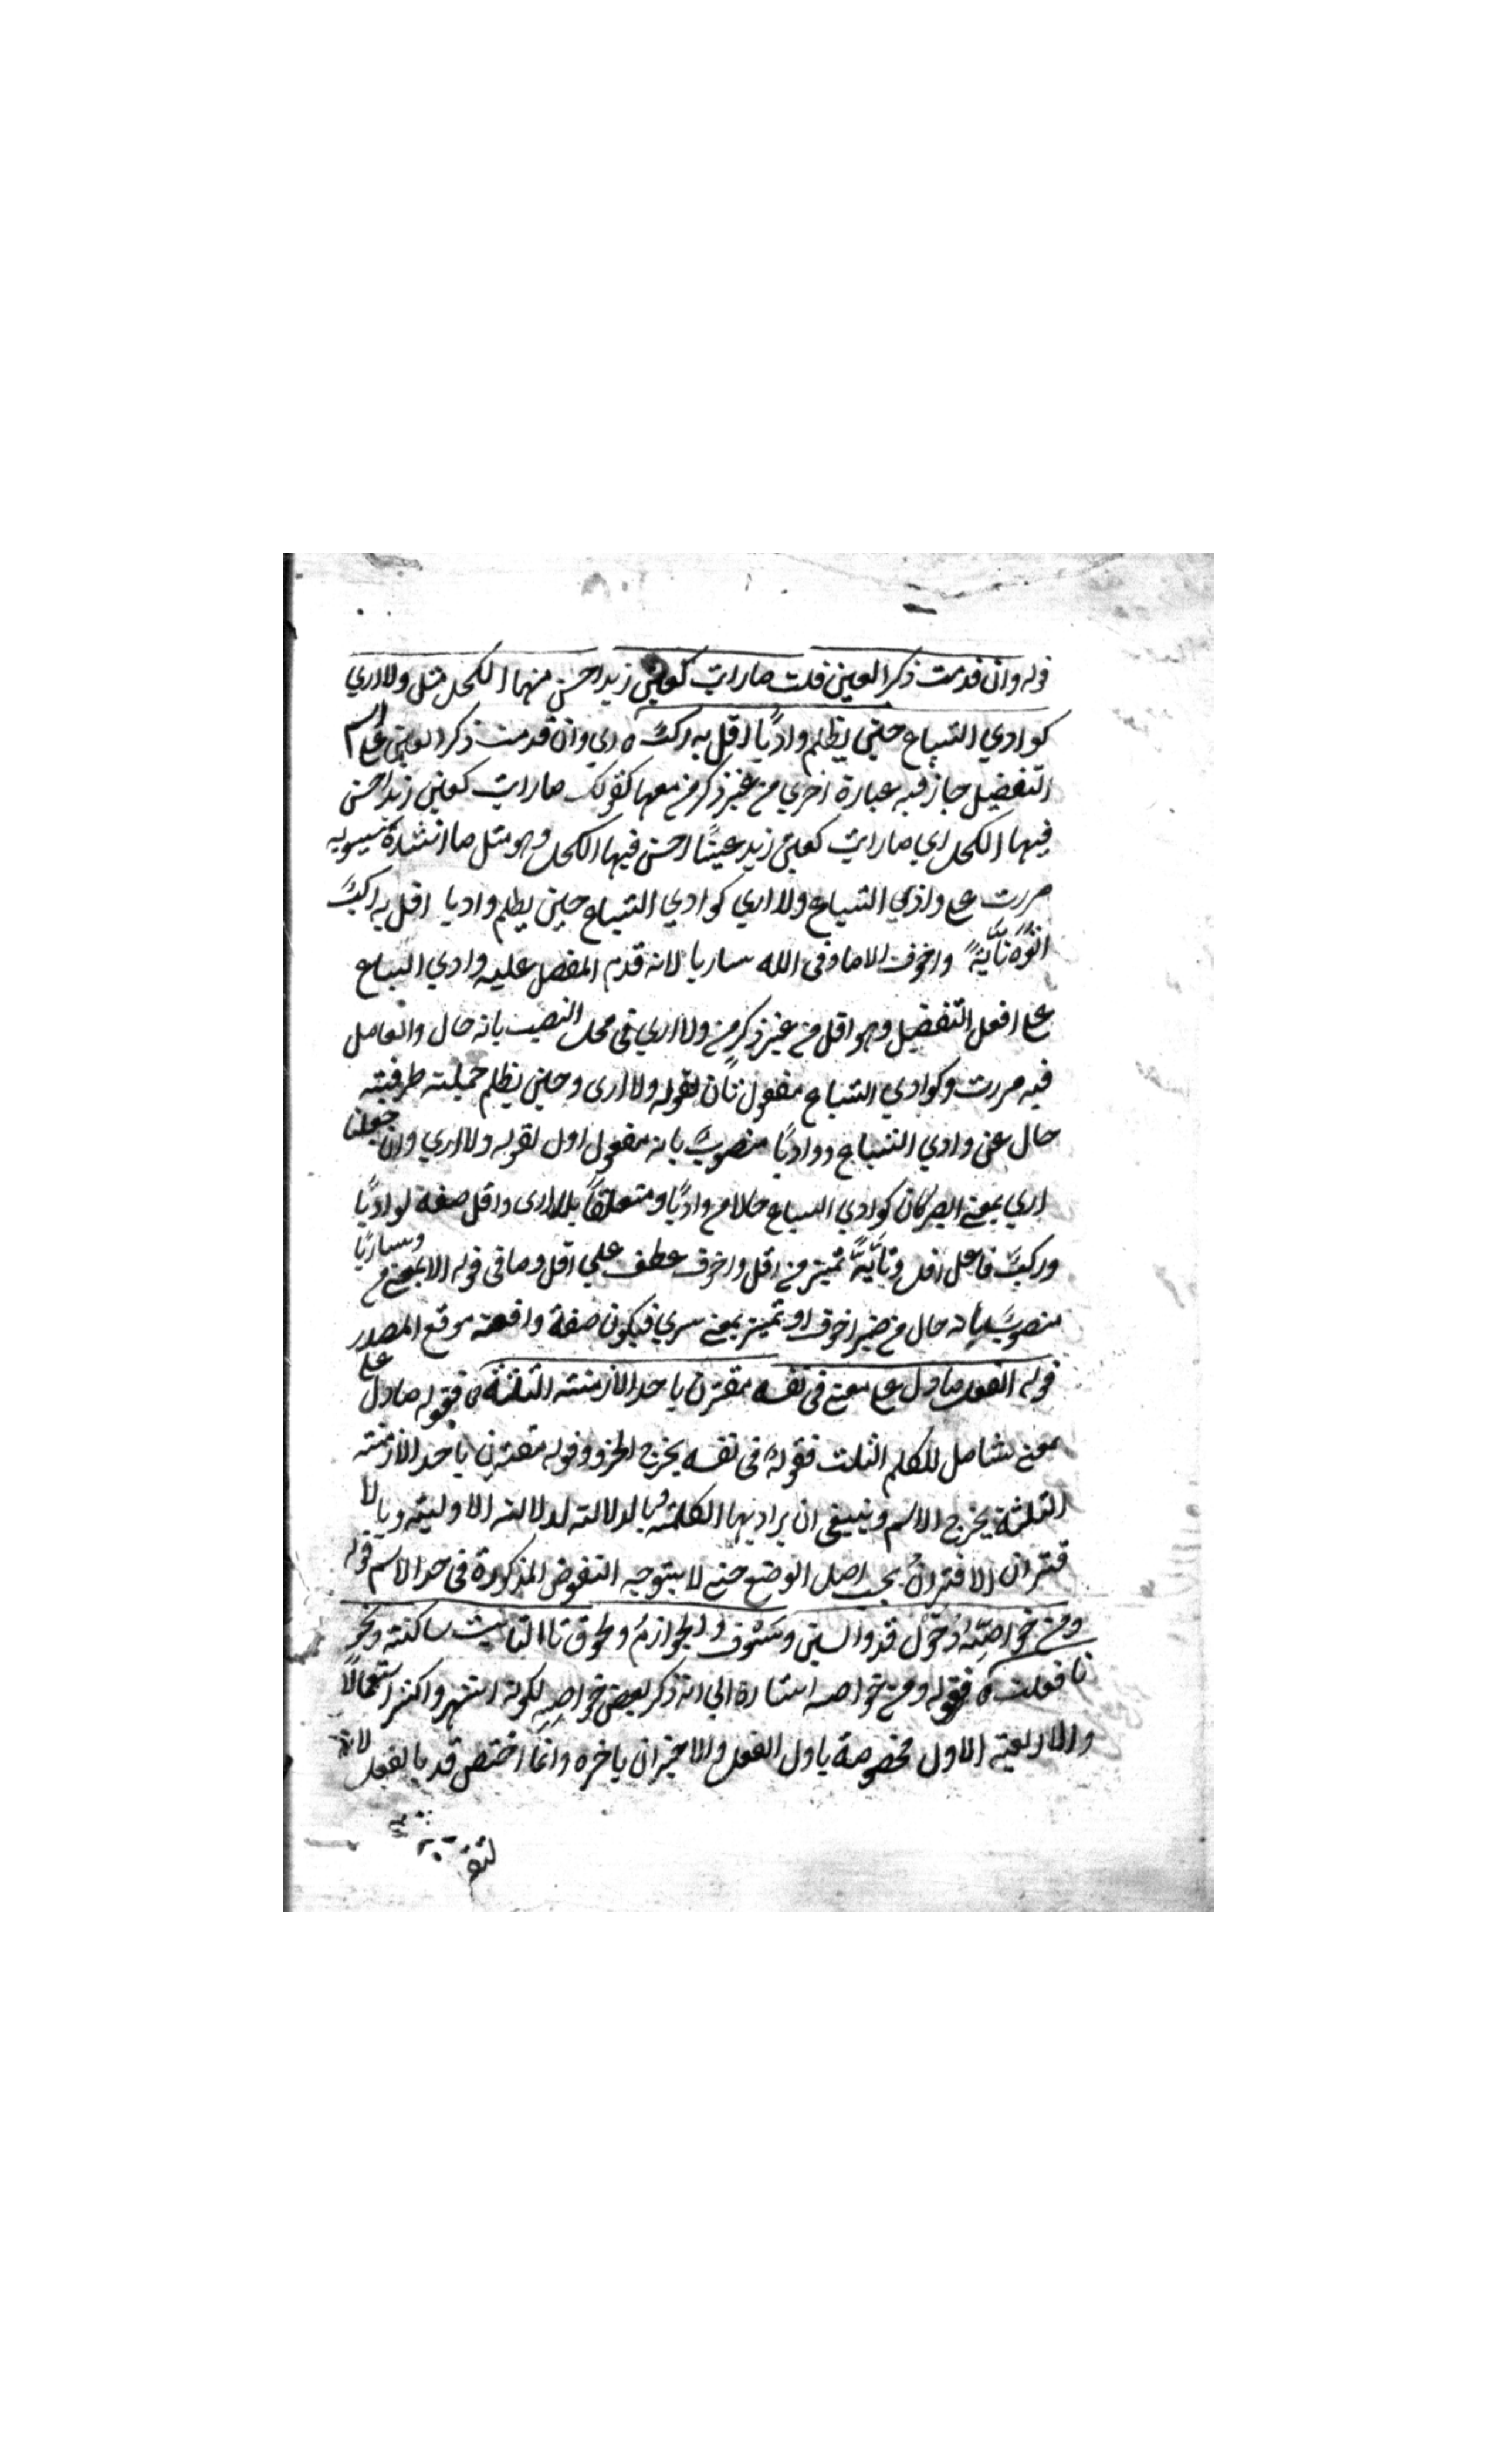 قوله وان قدمت ذكر العين قلت ما رايت كعين زيد احسن منها الكحل مثل ولا اري
كوادي السباع حين يظلم واديًا اقل به ركبٌ ه اي وان قدمت ذكر العين على اسم
التفضيل جاز فيه عبارة اخري من غير ذكر من معها كقولك ما رايت كعين زيد احسن
فيها الكحل اي ما رايت كعين زيد عينًا احسن فيها الكحل وهو مثل ما انشده سيبويه
مررت على وادي السباع ولا اري كوادي السباع حين يظلم واديا اقل به ركبٌ
اتوه تأيّةً واخوف الا ما وقى الله ساريا لانه قدم المفضل عليه وادي السباع
على افعل التفضيل وهو اقل من غير ذكر من ولا اري في محل النصب بانه حال والعامل
فيه مررت وكوادي السباع مفعول ثان لقوله ولا ارى وحين يظلم جملة ظرفية
حال عن وادي السباع وواديًا منصوبٌ بانه مفعول اول لقوله ولا اري وان جعلنا
اري بمعنى البصر كان كوادي السباع حالا من واديًا ومتعلقًا بلا ارى واقل صفة لواديًا
وركبٌ فاعل اقل وتأيّةً تميز من اقل واخوف عطف على اقل وما في قوله الا بمعنى من وساريًا
منصوبٌ بانه حال من ضمير اخوف او تميز بمعنى سري فيكون صفة واقعة موقع المصدر
قوله الفعل ما دل على معنى في نفسه مقترن باحد الازمنة الثلثة ه فقوله ما دل على
معنى شامل للكلم الثلث فقوله في نفسه يخرج الحرف وقوله مقترن باحد الازمنة
الثلثة يخرج الاسم وينبغي ان يراد بها الكلمة وبالدلالة لدلالة الاولية وبالا
قتران الاقتران بحسب اصل الوضع حتى لا يتوجه النقوض المذكورة في حد الاسم قوله
ومن خواصّه دخول قد والسين وسوف والجوازم ولحوق تا التانيث ساكنة ونحو
تا فعلت ه فقوله ومن خواصه اشارة الي انه ذكر بعض خواصه لكونه اشهر واكثر استعمالًا
والاربعة الاول مخصوصة باول الفعل والاخيران باخره وانما اختص قد بالفعل لانه